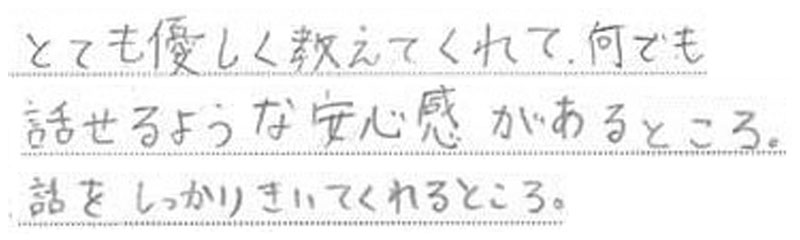 とても優しく教えてくれて、何でも
話せるような安心感があるところ。
話をしっかりきいてくれるところ。